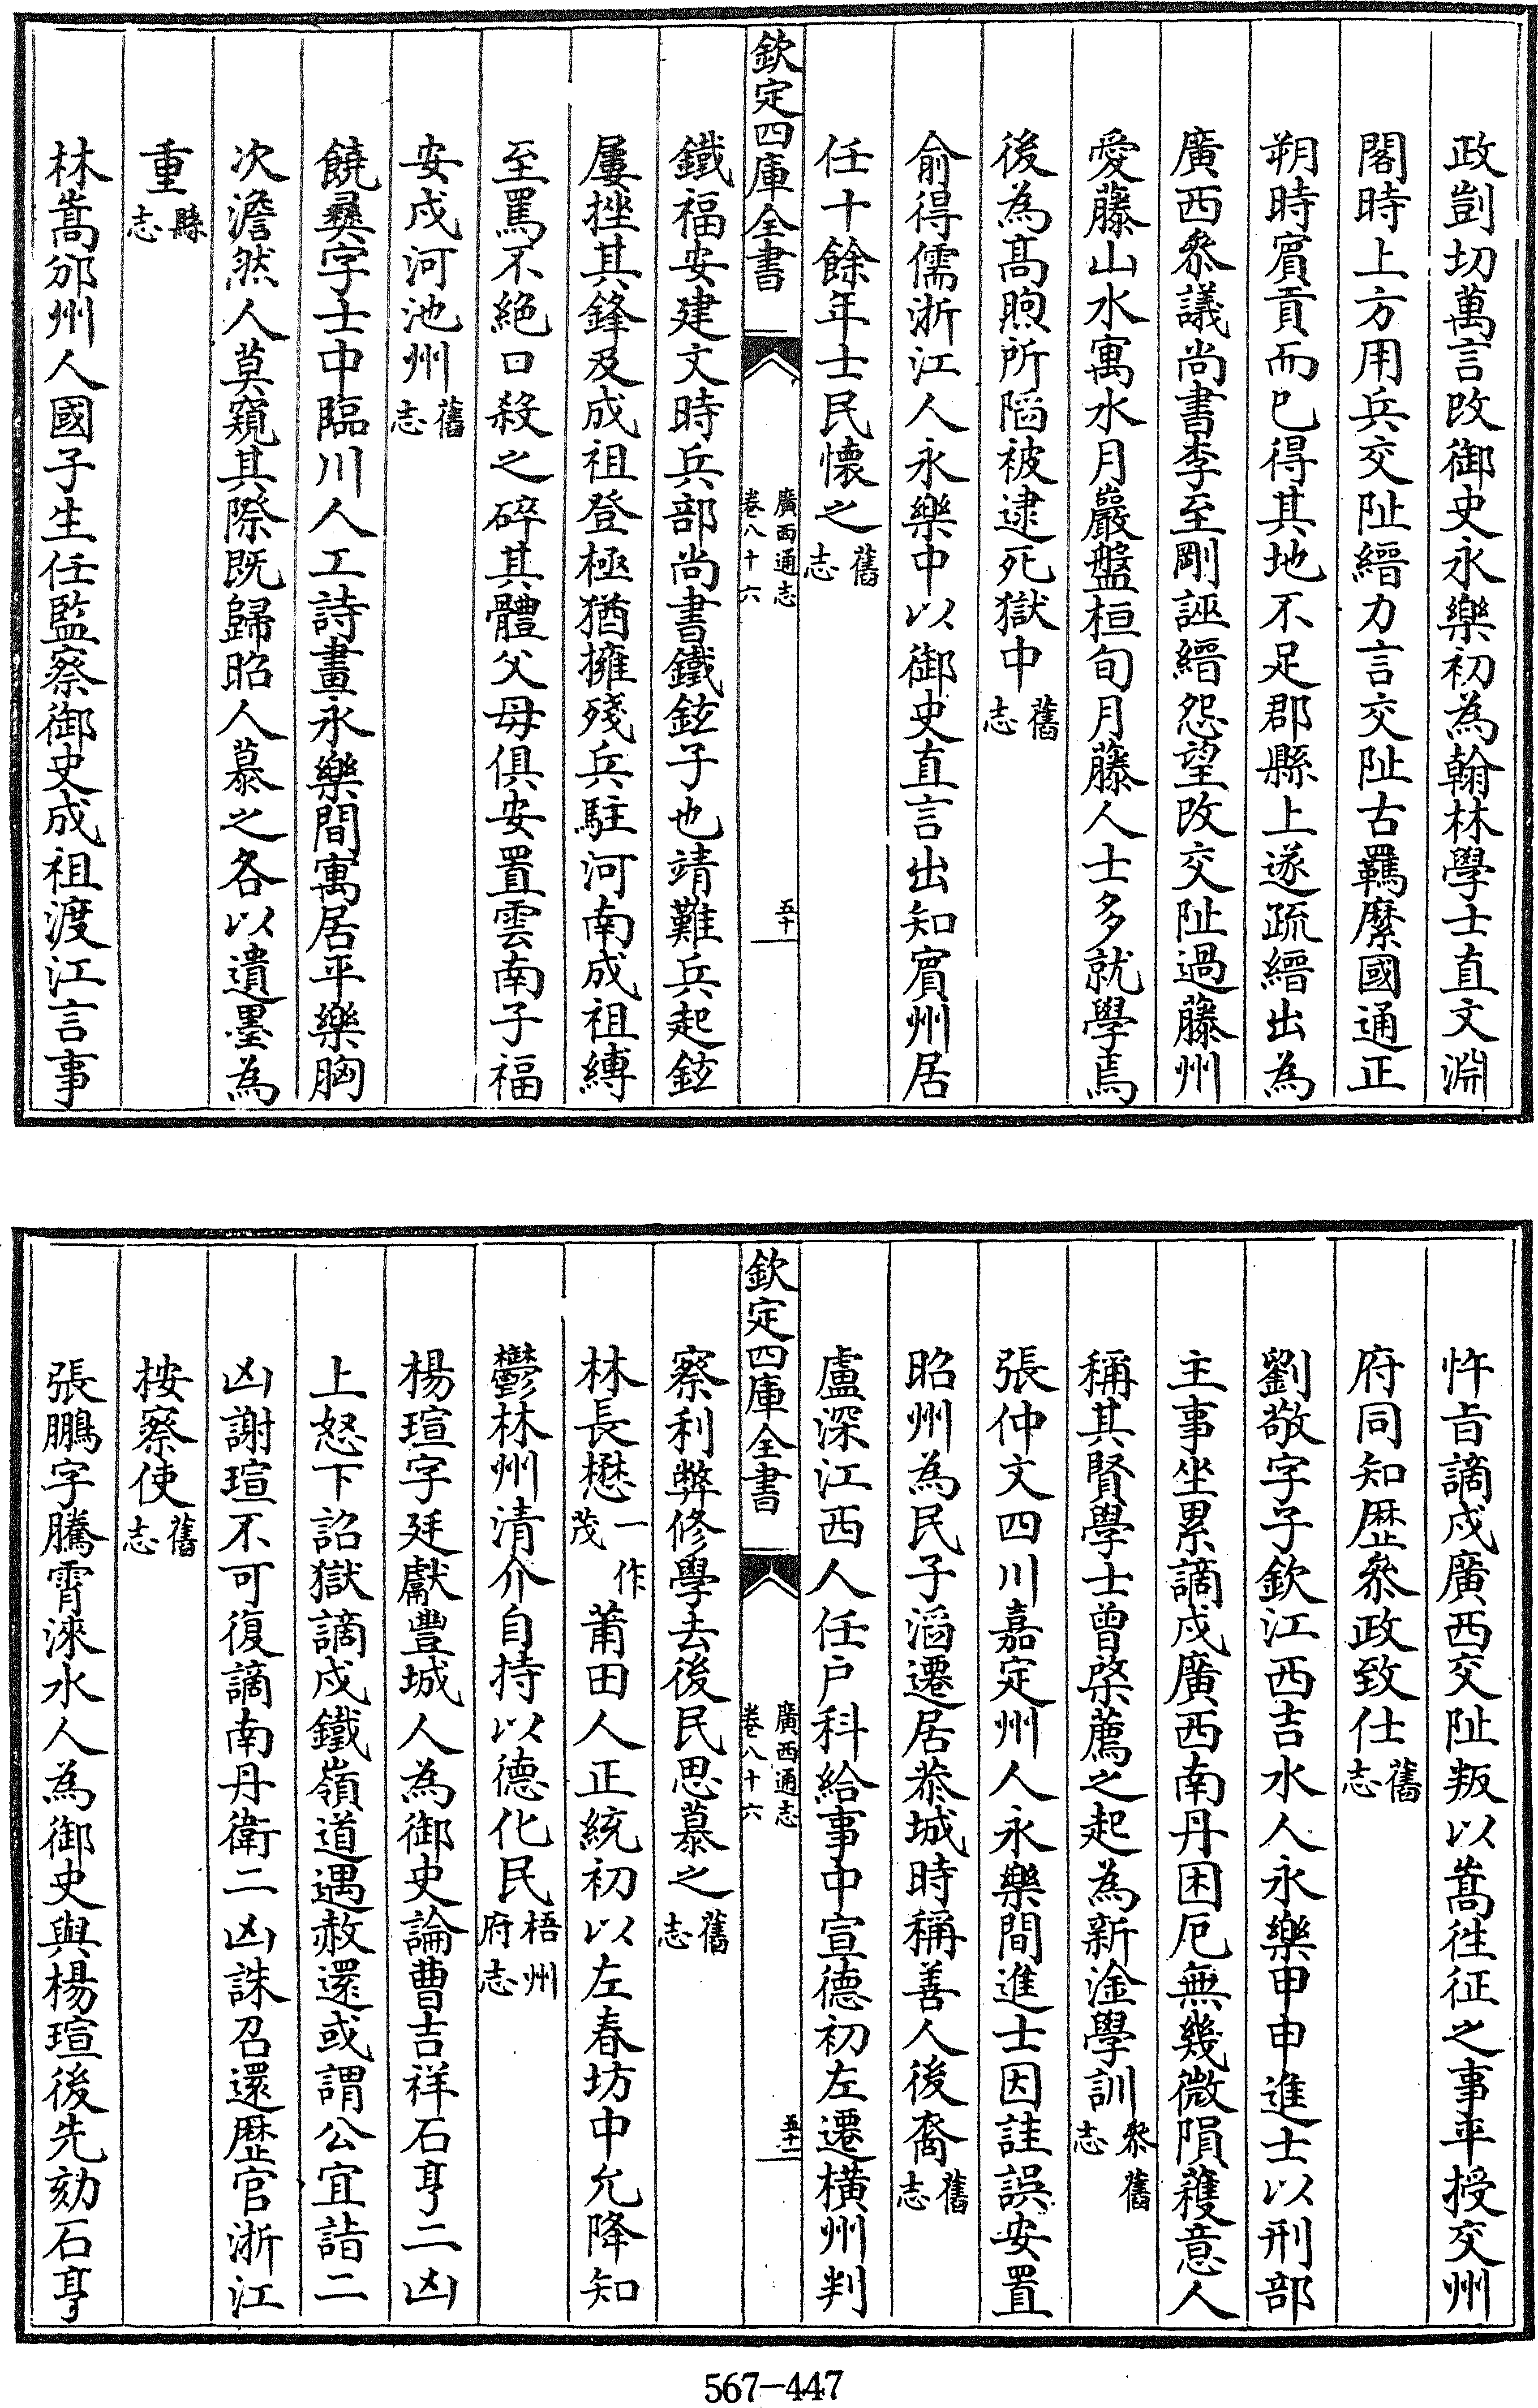 政剴切萬言改御史永樂初為翰林學士直文淵
閣時上方用兵交阯縉力言交阯古羈縻國通正
朔時賔貢而已得其地不足郡縣上遂疏縉出為
廣西叅議尚書李至剛誣縉怨望改交阯過藤州
愛藤山水寓水月巖盤桓旬月藤人士多就學焉
後為髙煦所陷被逮死獄中舊志
俞得儒浙江人永樂中以御史直言出知賔州居
任十餘年士民懐之舊志
欽定四庫全書 廣西通志卷八十六 五十
鐵福安建文時兵部尚書鐵鉉子也靖難兵起鉉
屢挫其鋒及成祖登極猶擁殘兵駐河南成祖縛
至罵不絕口殺之碎其體父母俱安置雲南子福
安戍河池州舊志
饒彝字士中臨川人工詩畫永樂間寓居平樂胸
次澹然人莫窺其際既歸昭人慕之各以遺墨為
重縣志
林嵩邠州人國子生任監察御史成祖渡江言事
忤㫖謫戍廣西交阯叛以嵩徃征之事平授交州
府同知歴叅政致仕舊志
劉敬字子欽江西吉水人永樂甲申進士以刑部
主事坐累謫戍廣西南丹困厄無幾微隕穫意人
稱其賢學士曾棨薦之起為新淦學訓叅舊志
張仲文四川嘉定州人永樂間進士因詿誤安置
昭州為民子滔遷居恭城時稱善人後裔舊志
盧深江西人任户科給事中宣德初左遷橫州判
欽定四庫全書 廣西通志卷八十六 五十一
察利弊修學去後民思慕之舊志
林長懋一作茂莆田人正統初以左春坊中允降知
鬱林州清介自持以德化民梧州府志
楊瑄字廷獻豐城人為御史論曹吉祥石亨二凶
上怒下詔獄謫戍鐵嶺道遇赦還或謂公宜詣二
凶謝瑄不可復謫南丹衛二凶誅召還歴官浙江
按察使舊志
張鵬字騰霄淶水人為御史與楊瑄後先劾石亨
567-447